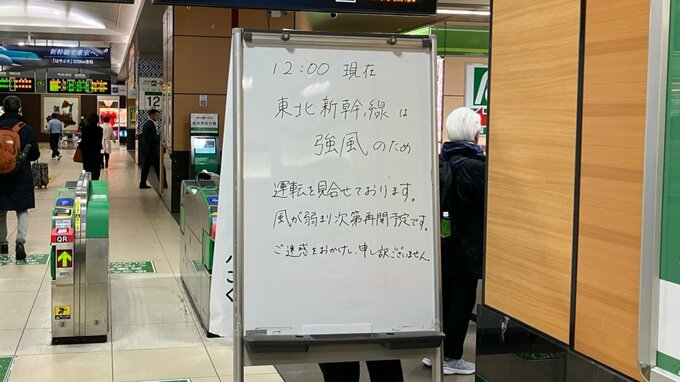 12:00 現在
東北新幹線は
強風のため
運転を見合せております。
風が弱まり次第再開予定です。
ご迷惑をおかけし、申し訳ございません。
新幹線で東京へ
12
QR
2